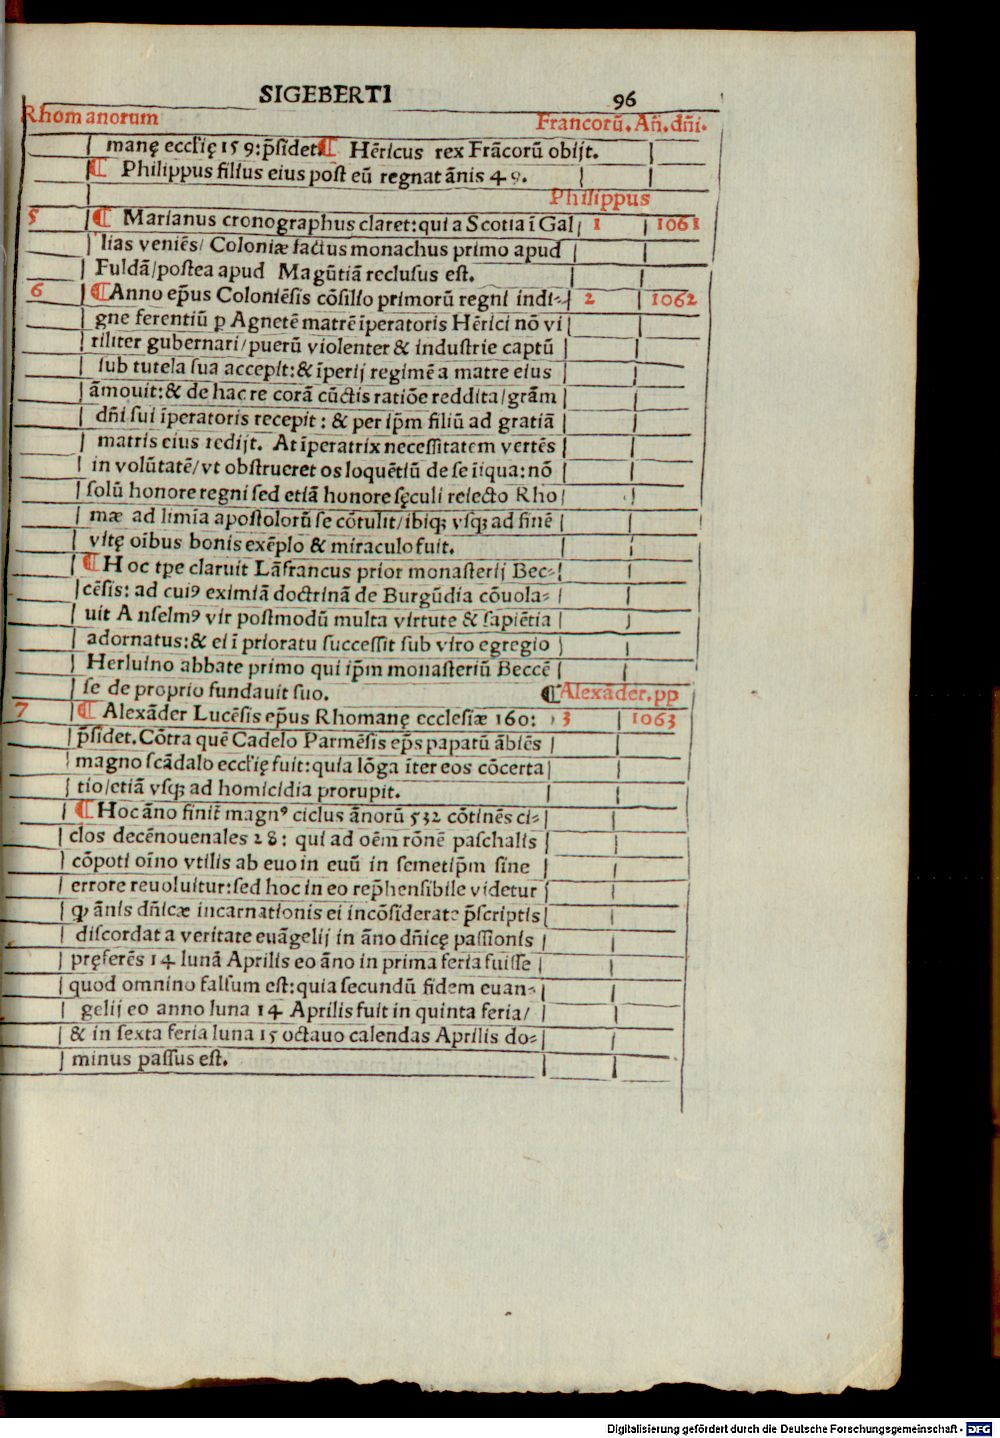 SIGEBERTI 96
Rhomanorum Francorū. Añ. dñi.
manę eccl'ię 159: p̄sidet. ¶ Hēricus rex Frācorū obijt.
¶ Philippus filius eius post eū regnat ānis 49.
Philippus
5 ¶ Marianus cronographus claret: qui a Scotia ī Gal 1 1061
lias veniēs/ Coloniæ factus monachus primo apud
Fuldā/ postea apud Magūtiā reclusus est.
6 ¶ Anno ep̄us Coloniēsis cōsilio primorū regni indi- 2 1062
gne ferentiū p Agnetē matrē īperatoris Hērici nō vi
riliter gubernari/ puerū violenter & industrie captū
sub tutela sua accepit: & īperij regimē a matre eius
āmouit: & de hac re corā cūctis ratiōe reddita/ grām
dñi sui īperatoris recepit: & per ip̄m filiū ad gratiā
matris eius redijt. At īperatrix necessitatem vertēs
in volūtatē/ vt obstrueret os loquētiū de se īiqua: nō
solū honore regni sed etiā honore sęculi reiecto Rho
mæ ad limīa apostolorū se cōtulit/ ibiq; vsq; ad finē
vitę oībus bonis exēplo & miraculo fuit.
¶ Hoc tpe claruit Lāfrancus prior monasterij Bec-
cēsis: ad cuiꝰ eximiā doctrinā de Burgūdia cōuola-
uit Anselmꝰ vir postmodū multa virtute & sapiētia
adornatus: & ei ī prioratu successit sub viro egregio
Herluino abbate primo qui ip̄m monasteriū Beccē
se de proprio fundauit suo. ¶ Alexāder. pp
7 ¶ Alexāder Lucēsis ep̄us Rhomanę ecclesiæ 160: 3 1063
p̄sidet. Cōtra quē Cadelo Parmēsis ep̄s papatū ābiēs
magno scādalo eccl'ię fuit: quia lōga īter eos cōcerta
tio/ etiā vsq; ad homicidia prorupit.
¶ Hoc āno finit̄ magnꝰ ciclus ānorū 532 cōtinēs ci-
clos decēnouenales 28: qui ad oēm rōnē paschalis
cōpoti oīno vtilis ab euo in euū in semetip̄m sine
errore reuoluitur: sed hoc in eo rep̄hensibile videtur
q; ānis dñicæ incarnationis ei incōsiderate p̄scriptis
discordat a veritate euāgelij in āno dñicę passionis
pręferēs 14 lunā Aprilis eo āno in prima feria fuisse
quod omnino falsum est: quia secundū fidem euan-
gelij eo anno luna 14 Aprilis fuit in quinta feria/
& in sexta feria luna 15 octauo calendas Aprilis do-
minus passus est.
Digitalisierung gefördert durch die Deutsche Forschungsgemeinschaft - DFG